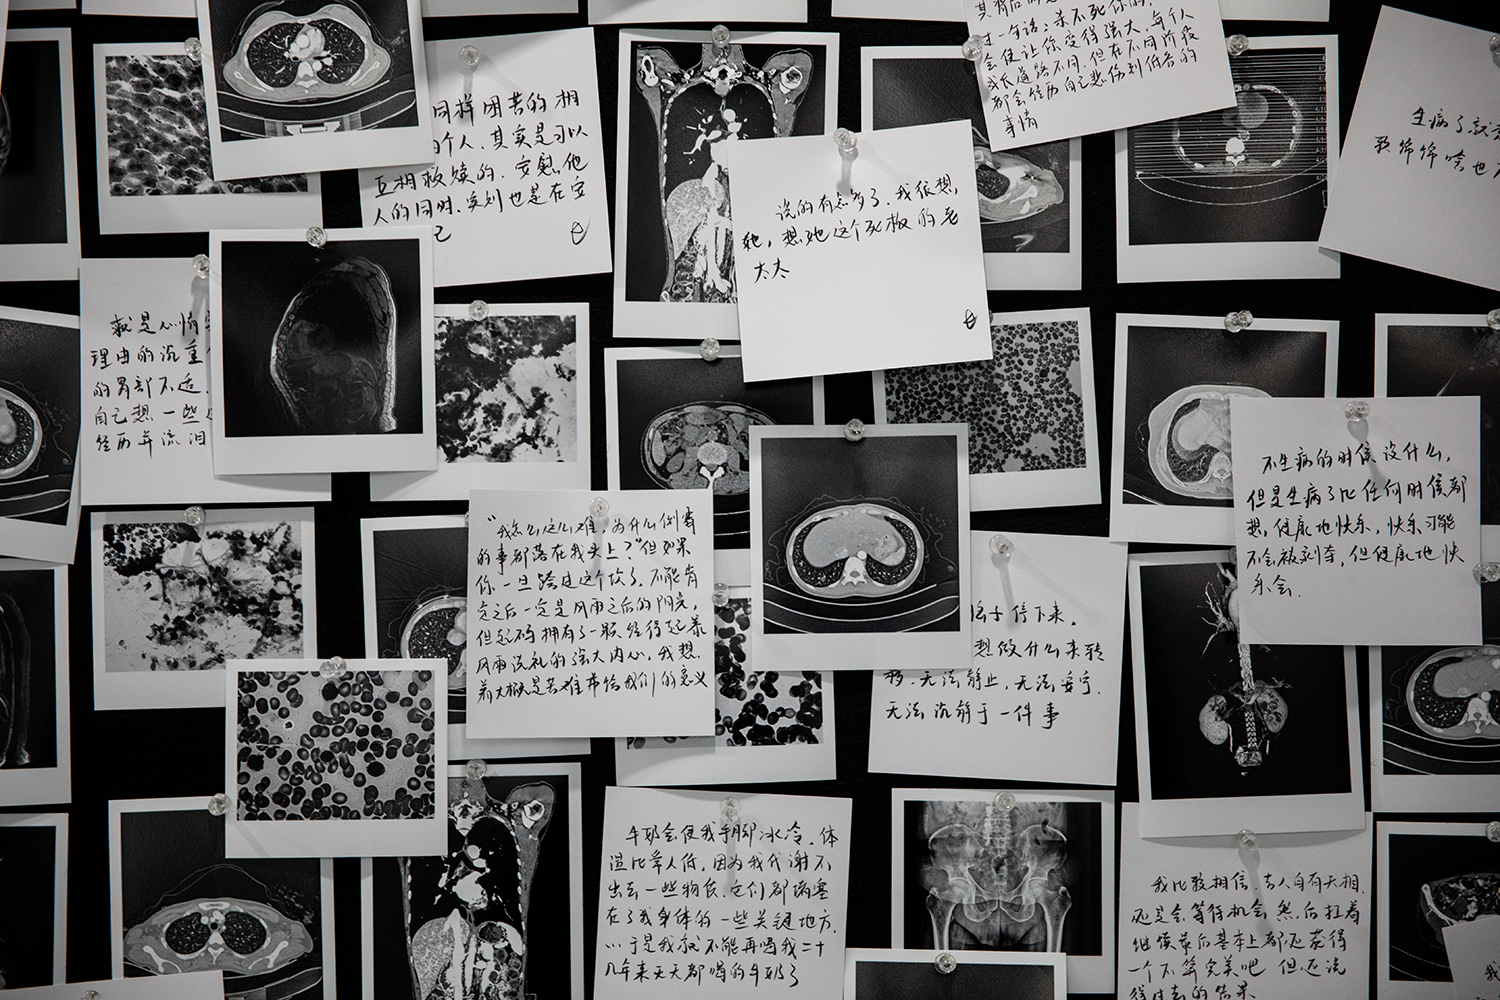 过一句话:杀不死你的,
会使让你变得强大,每个人
成长道路不同,但在不同阶段
都会经历自己悲伤到低谷的
事情
同样困苦的相
个人,其实是可以
互相救赎的,安慰他
人的同时,实则也是在安
己
说的有点多了,我很想,
她,想她这个死板的老
太太
生病了就
就是心情
理由的沉重
的胃部不适,
自己想一些
经历弄流泪
不生病的时候没什么,
但是生病了比任何时候都
想,健康地快乐,快乐可能
不会被剥夺,但健康地快
乐会.
"我怎么这么难,为什么倒霉
的事都落在我头上?"但如果
你一旦跨过这个坎了,不能肯
定之后一定是风雨之后的阳光,
但起码拥有了一颗经得起暴
风雨洗礼的强大内心,我想,
着大概是苦难带给我们的意义
停下来,
想做什么来转
移,无法静止,无法安宁,
无法沉静于一件事
牛奶会使我手脚冰冷,体
温比常人低,因为我代谢不
出去一些物质,它们都堵塞
在了我身体的一些关键地方,
…于是我就不能再喝我二十
几年来天天都喝的牛奶了
我比较相信,吉人自有天相,
还是会等待机会,然后扛着
继续最后基本上都还获得
一个不算完美吧 但还说
得过去的结果